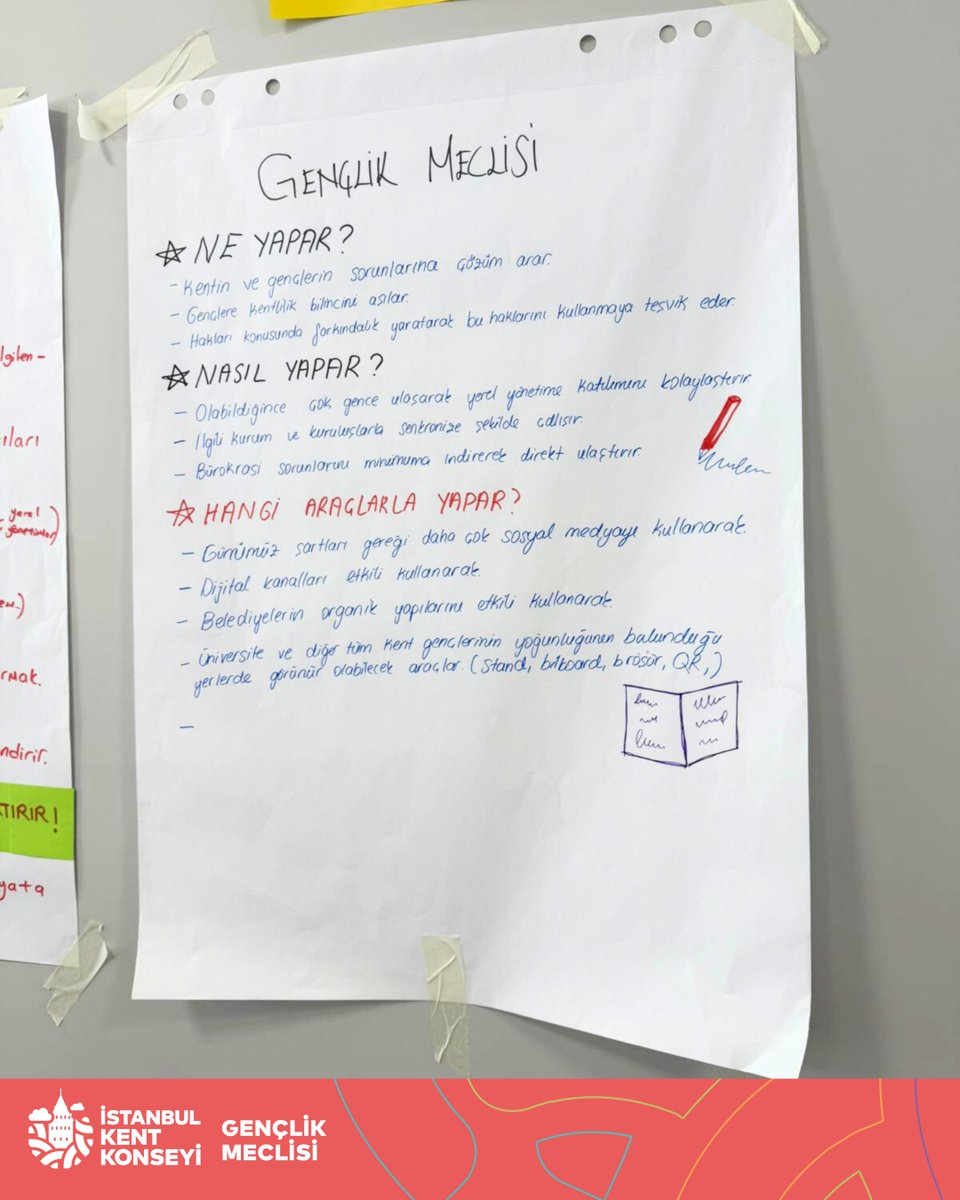 GENÇLİK MECLİSİ
NE YAPAR?
- Kentin ve gençlerin sorunlarına çözüm arar.
- Gençlere kentlilik bilincini aşılar.
- Hakları konusunda farkındalık yaratarak bu haklarını kullanmaya teşvik eder.
NASIL YAPAR?
- Olabildiğince çok gence ulaşarak yerel yönetime katılımını kolaylaştırır
- İlgili kurum ve kuruluşlarla senkronize şekilde çalışır.
- Bürokrasi sorunlarını minimuma indirerek direkt ulaştırır
HANGİ ARAÇLARLA YAPAR?
- Günümüz şartları gereği daha çok sosyal medyayı kullanarak.
- Dijital kanalları etkili kullanarak.
- Belediyelerin organik yapılarını etkili kullanarak.
- Üniversite ve diğer tüm kent gençlerinin yoğunluğunun bulunduğu
yerlerde görünür olabilecek araçlar. (Stand, bilboard, broşür, QR,)
-
lgilen-
ıları
yerel
yönetimler)
em.)
rmak.
ndirir.
TIRIR!
yata
İSTANBUL
KENT
KONSEYİ
GENÇLİK
MECLİSİ